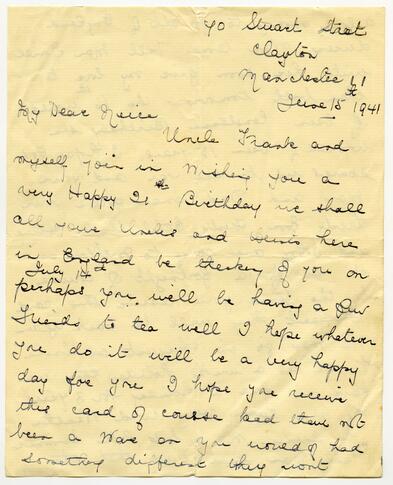 40 Stuart Street
Clayton
Manchester 11
June 15th 1941
My Dear Neice
Uncle Frank and
myself join in wishing you a
very Happy 21st Birthday we shall
all your Uncles and here
in England be thinking of you on
July 1st
perhaps you will be having a few
friends to tea well I hope whatever
you do it will be a very happy
day for you I hope you receive
this card of course had there not
been a war on you would of had
something different they wont